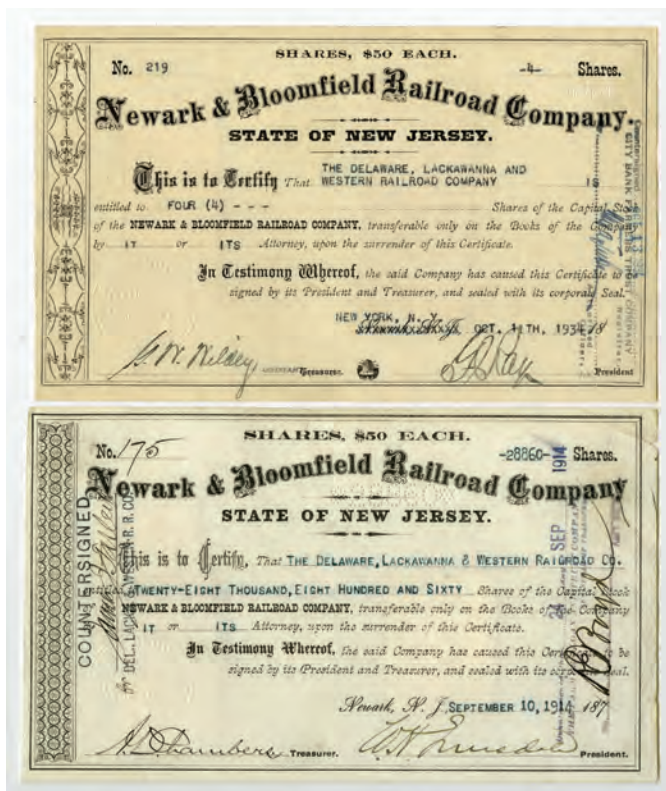 SHARES, $50 EACH.
No. 219 -4- Shares.
Newark & Bloomfield Railroad Company.
STATE OF NEW JERSEY.
This is to Certify That THE DELAWARE, LACKAWANNA AND
WESTERN RAILROAD COMPANY IS
entitled to FOUR (4) - - - Shares of the Capital Stock
of the NEWARK & BLOOMFIELD RAILROAD COMPANY, transferable only on the Books of the Company
by IT or ITS Attorney, upon the surrender of this Certificate.
In Testimony Whereof, the said Company has caused this Certificate to
signed by its President and Treasurer, and sealed with its corporate Seal.
NEW YORK, N. Y.
OCT. 11TH, 1934 18
Treasurer. President
Countersigned
CITY BANK FARMERS TRUST COMPANY
Registrar
SHARES, $50 EACH.
No. 175 -28860- Shares.
Newark & Bloomfield Railroad Company
STATE OF NEW JERSEY.
This is to Certify, That THE DELAWARE, LACKAWANNA & WESTERN RAILROAD CO.
entitled TWENTY-EIGHT THOUSAND, EIGHT HUNDRED AND SIXTY Shares of the Capital Stock
NEWARK & BLOOMFIELD RAILROAD COMPANY, transferable only on the Books of the Company
IT or ITS Attorney, upon the surrender of this Certificate.
In Testimony Whereof, the said Company has caused this Certificate to be
signed by its President and Treasurer, and sealed with its corporate Seal.
Newark, N. J. SEPTEMBER 10, 1914 187
Treasurer. President.
COUNTERSIGNED
DEL. LACKA. & WESTERN R. R. CO.
SEP 1914